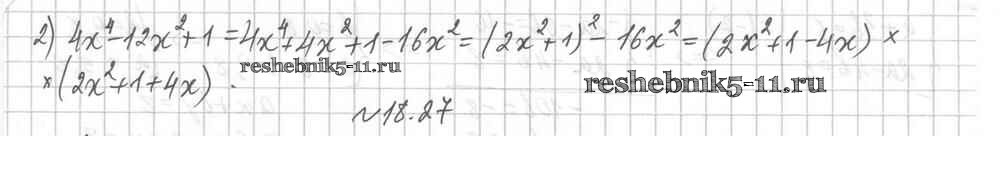 2) 4x⁴-12x²+1=4x⁴+4x²+1-16x²=(2x²+1)²-16x²=(2x²+1-4x)×
×(2x²+1+4x).
reshebnik5-11.ru
reshebnik5-11.ru
~18.27